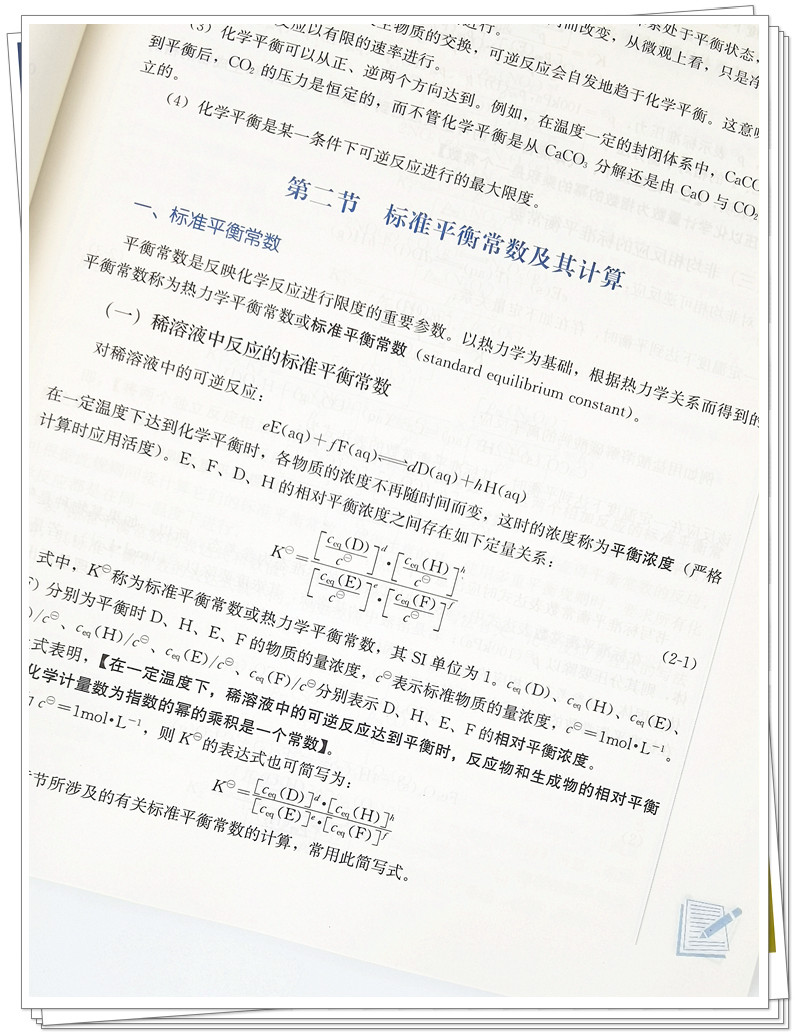 系处于平衡状态，
进行。 而改变，从微观上看，只是净
反应以有限的速率进行。 物质的交换，可逆反应会自发地趋于化学平衡。这意
（3）化学平衡可以从正、逆两个方向达到。例如，在温度一定的封闭体系中，CaCO
到平衡后，CO₂ 的压力是恒定的，而不管化学平衡是从 CaCO₃ 分解还是由 CaO 与 CO₂
立的。
（4）化学平衡是某一条件下可逆反应进行的最大限度。
第二节 标准平衡常数及其计算
一、标准平衡常数
平衡常数是反映化学反应进行限度的重要参数。以热力学为基础，根据热力学关系而得到的
平衡常数称为热力学平衡常数或标准平衡常数（standard equilibrium constant）。
（一）稀溶液中反应的标准平衡常数
对稀溶液中的可逆反应：
eE(aq)+fF(aq)⇌dD(aq)+hH(aq)
在一定温度下达到化学平衡时，各物质的浓度不再随时间而变，这时的浓度称为平衡浓度（严格
计算时应用活度）。E、F、D、H 的相对平衡浓度之间存在如下定量关系：
K^⊖=([c_eq(D)/c^⊖]^d·[c_eq(H)/c^⊖]^h)/([c_eq(E)/c^⊖]^e·[c_eq(F)/c^⊖]^f) (2-1)
式中，K^⊖称为标准平衡常数或热力学平衡常数，其 SI 单位为 1。c_eq(D)、c_eq(H)、c_eq(E)、
F）分别为平衡时 D、H、E、F 的物质的量浓度，c^⊖表示标准物质的量浓度，c^⊖=1mol·L⁻¹。
)/c^⊖、c_eq(H)/c^⊖、c_eq(E)/c^⊖、c_eq(F)/c^⊖分别表示 D、H、E、F 的相对平衡浓度。
式表明，【在一定温度下，稀溶液中的可逆反应达到平衡时，反应物和生成物的相对平衡
化学计量数为指数的幂的乘积是一个常数】。
c^⊖=1mol·L⁻¹，则 K^⊖的表达式也可简写为：
K^⊖=([c_eq(D)]^d·[c_eq(H)]^h)/([c_eq(E)]^e·[c_eq(F)]^f)
节所涉及的有关标准平衡常数的计算，常用此简写式。